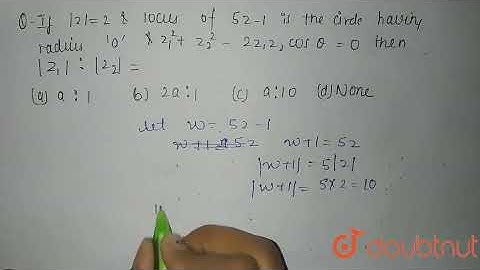 Q-If |z|=2 & locus of 5z-1 is the circle having
radius 'a' & z₁²+ z₂² - 2z₁z₂ cos θ = 0 then
|z₁| : |z₂| =
(a) a : 1 b) 2a:1 (c) a:10 (d) None
let w = 5z-1
w+1 = 5z
|w+1| = 5|z|
|w+1| = 5×2 = 10
doubtnut